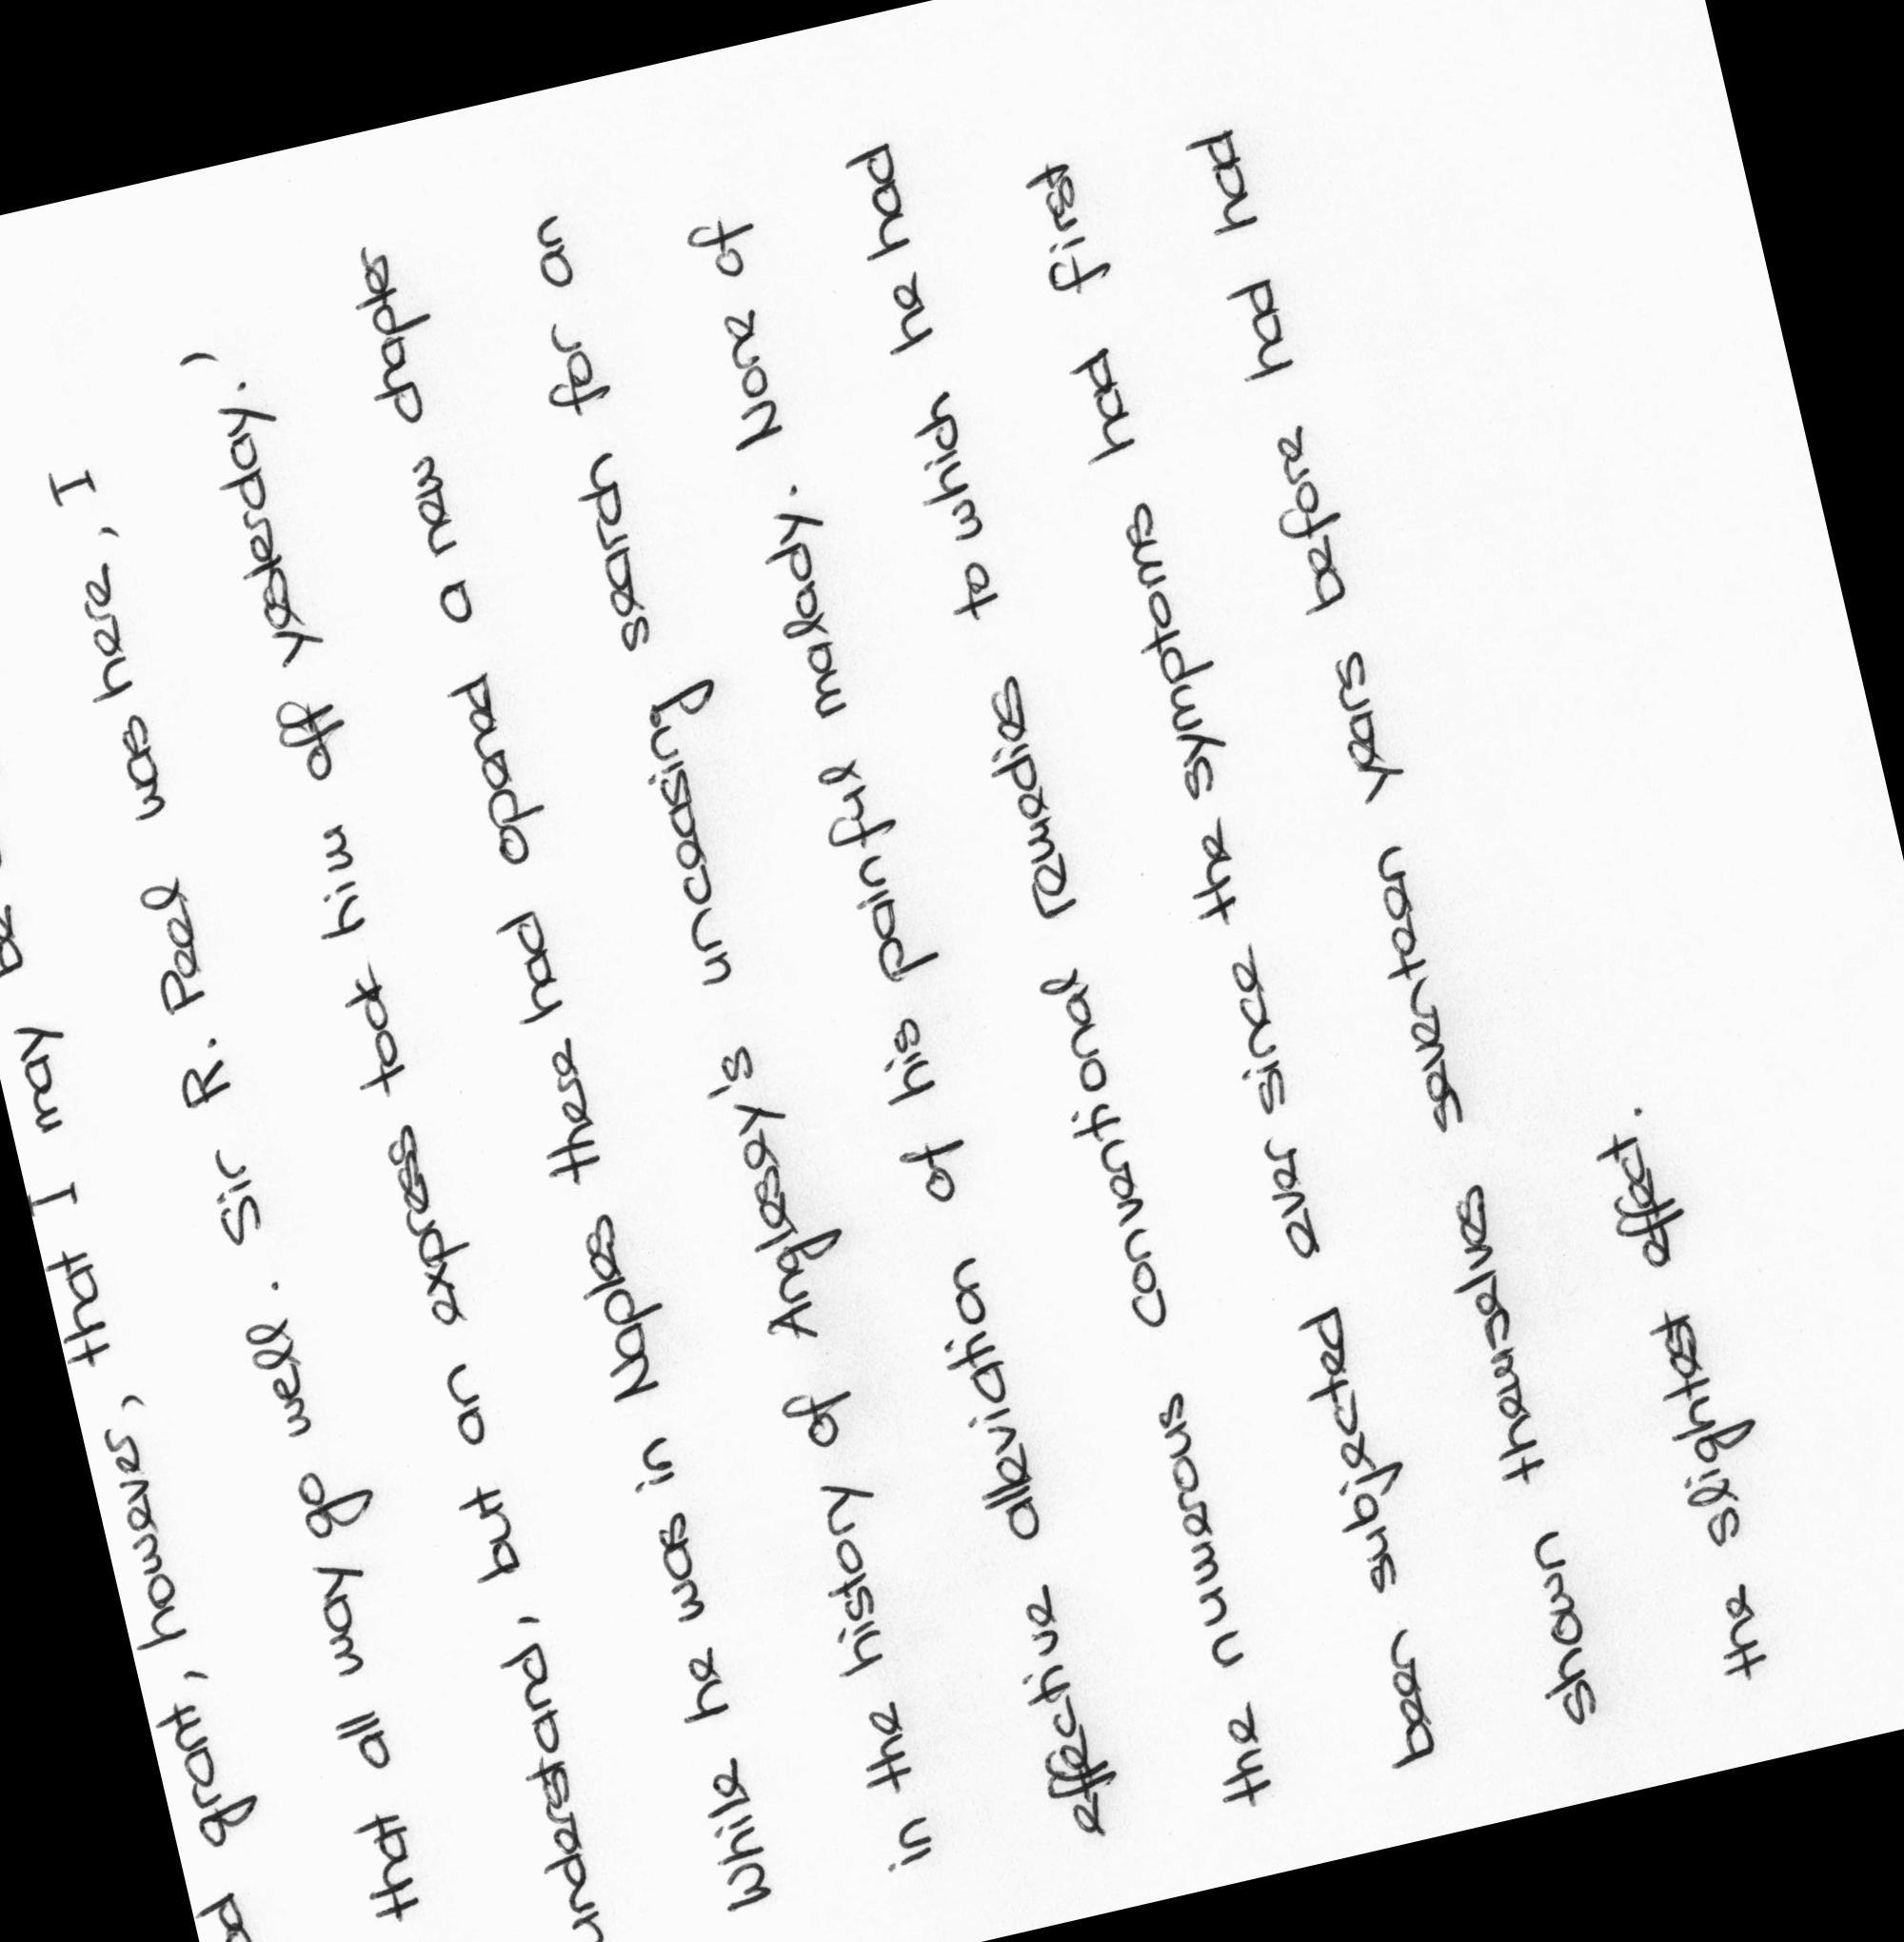 grant, however, that I may be
that all may go well. Sir R. Peel was here, I
understand, but an express took him off yesterday.'
While he was in Naples there had opened a new chapter
in the history of Anglesey's unceasing search for an
effective alleviation of his painful malady. None of
the numerous conventional remedies to which he had
been subjected ever since the symptoms had first
shown themselves seventeen years before had had
the slightest effect.